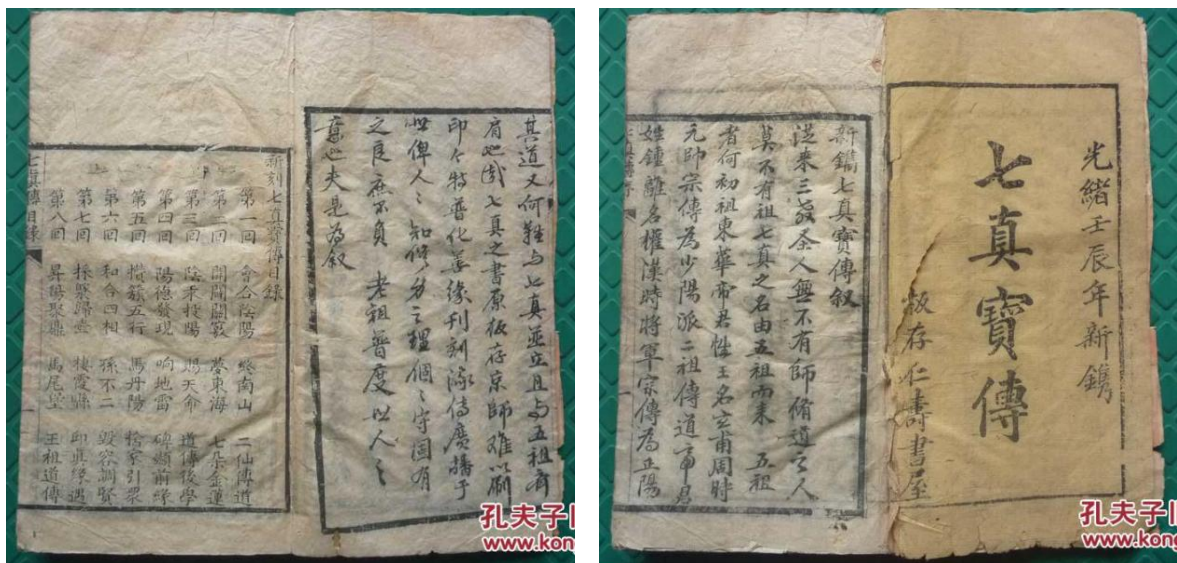 光緒壬辰年新鐫
七真寶傳
板存仁壽書屋
新鐫七真寶傳叙
從来三教圣人無不有師脩道之人
莫不有祖七真之名由五祖而来 五祖
者何初祖東華帝君性王名玄甫周時
元帥宗傳為少陽派二祖傳道帝君
姓鍾離名權漢時將軍宗傳為正陽
其道又何難与七真並立且与五祖齊
肩也哉七真之書原板存京師难以刷
印今特普化善缘刊刻流傳廣播于
世俾人々知修身之理個々守固有
之良庶不負 老祖普度以人之
意也夫是為叙
新刻七真寶傳目錄
第一回 會合陰陽 終南山 二仙傳道
第二回 開闡 夢東海 七朵金蓮
第三回 陰来投陽 賜天命 道傳後學
第四回 陽德發現 响地雷 碑顯前緣
第五回 攢簇五行 馬丹陽 捨家引眾
第六回 和合四相 孫不二 毀容調賢
第七回 採藥歸壺 棲霞縣 印真緣遇
第八回 昇陽聚 馬尾堡 王祖道傳
七真傳目錄
孔夫子旧
www.kong
孔夫子旧
www.kong